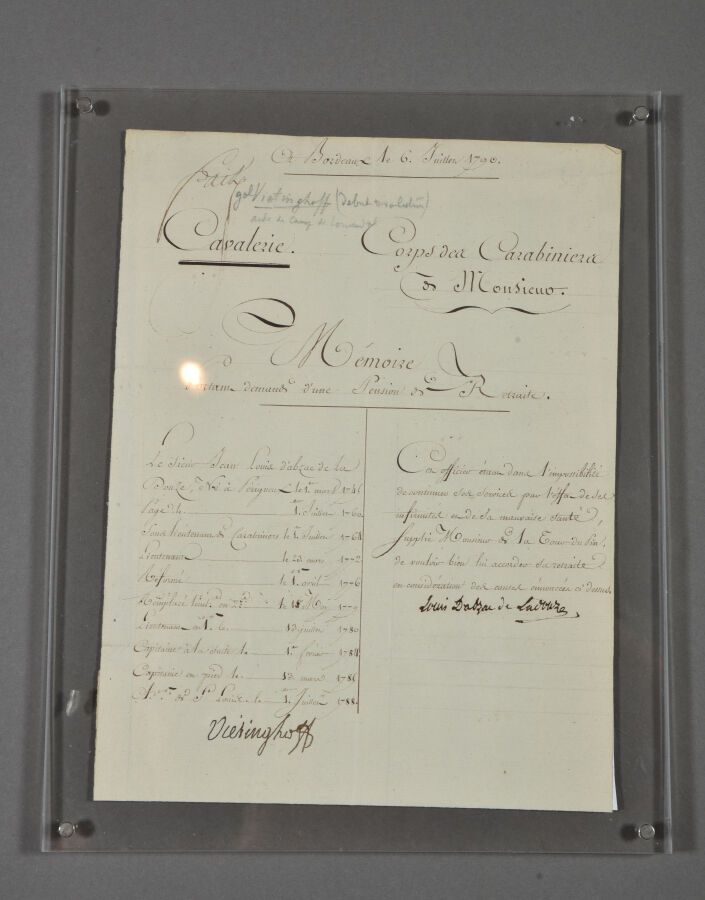 A Bordeaux le 6. Juillet 1790.
gal Vietinghoff (debut revolution)
aide de Camp de
Cavalerie.
Corps des Carabiniers
de Monsieur.
Mémoire
Portant demande d'une Pension de Retraite.
Le Sieur Jean Louis d'abzac de la
Douze, Né à Perigueux le 1er mars 1746
Page le 1er Juillet 1760
Sous lieutenant de Carabiniers le 1er Juillet 1764
Lieutenant le 23 mars 1772
Réformé le 1er avril 1776
Remplacé Lieut. en 2d le 18 May 1777
Lieutenant en 1er le 13 juillet 1780
Capitaine à la suite le 1er fevrier 1784
Capitaine en pied le 13 mars 1786
de St Louis le 1er Juillet 1788
Viétinghoff
Cet officier étant dans l'impossibilité
de continuer ses services pour l'effet de ses
infirmités et de sa mauvaise santé,
supplie Monsieur de la Tour du Pin,
de vouloir bien lui accorder sa retraite
en considération des causes énoncées ci dessus.
Louis Dabzac de Ladouze